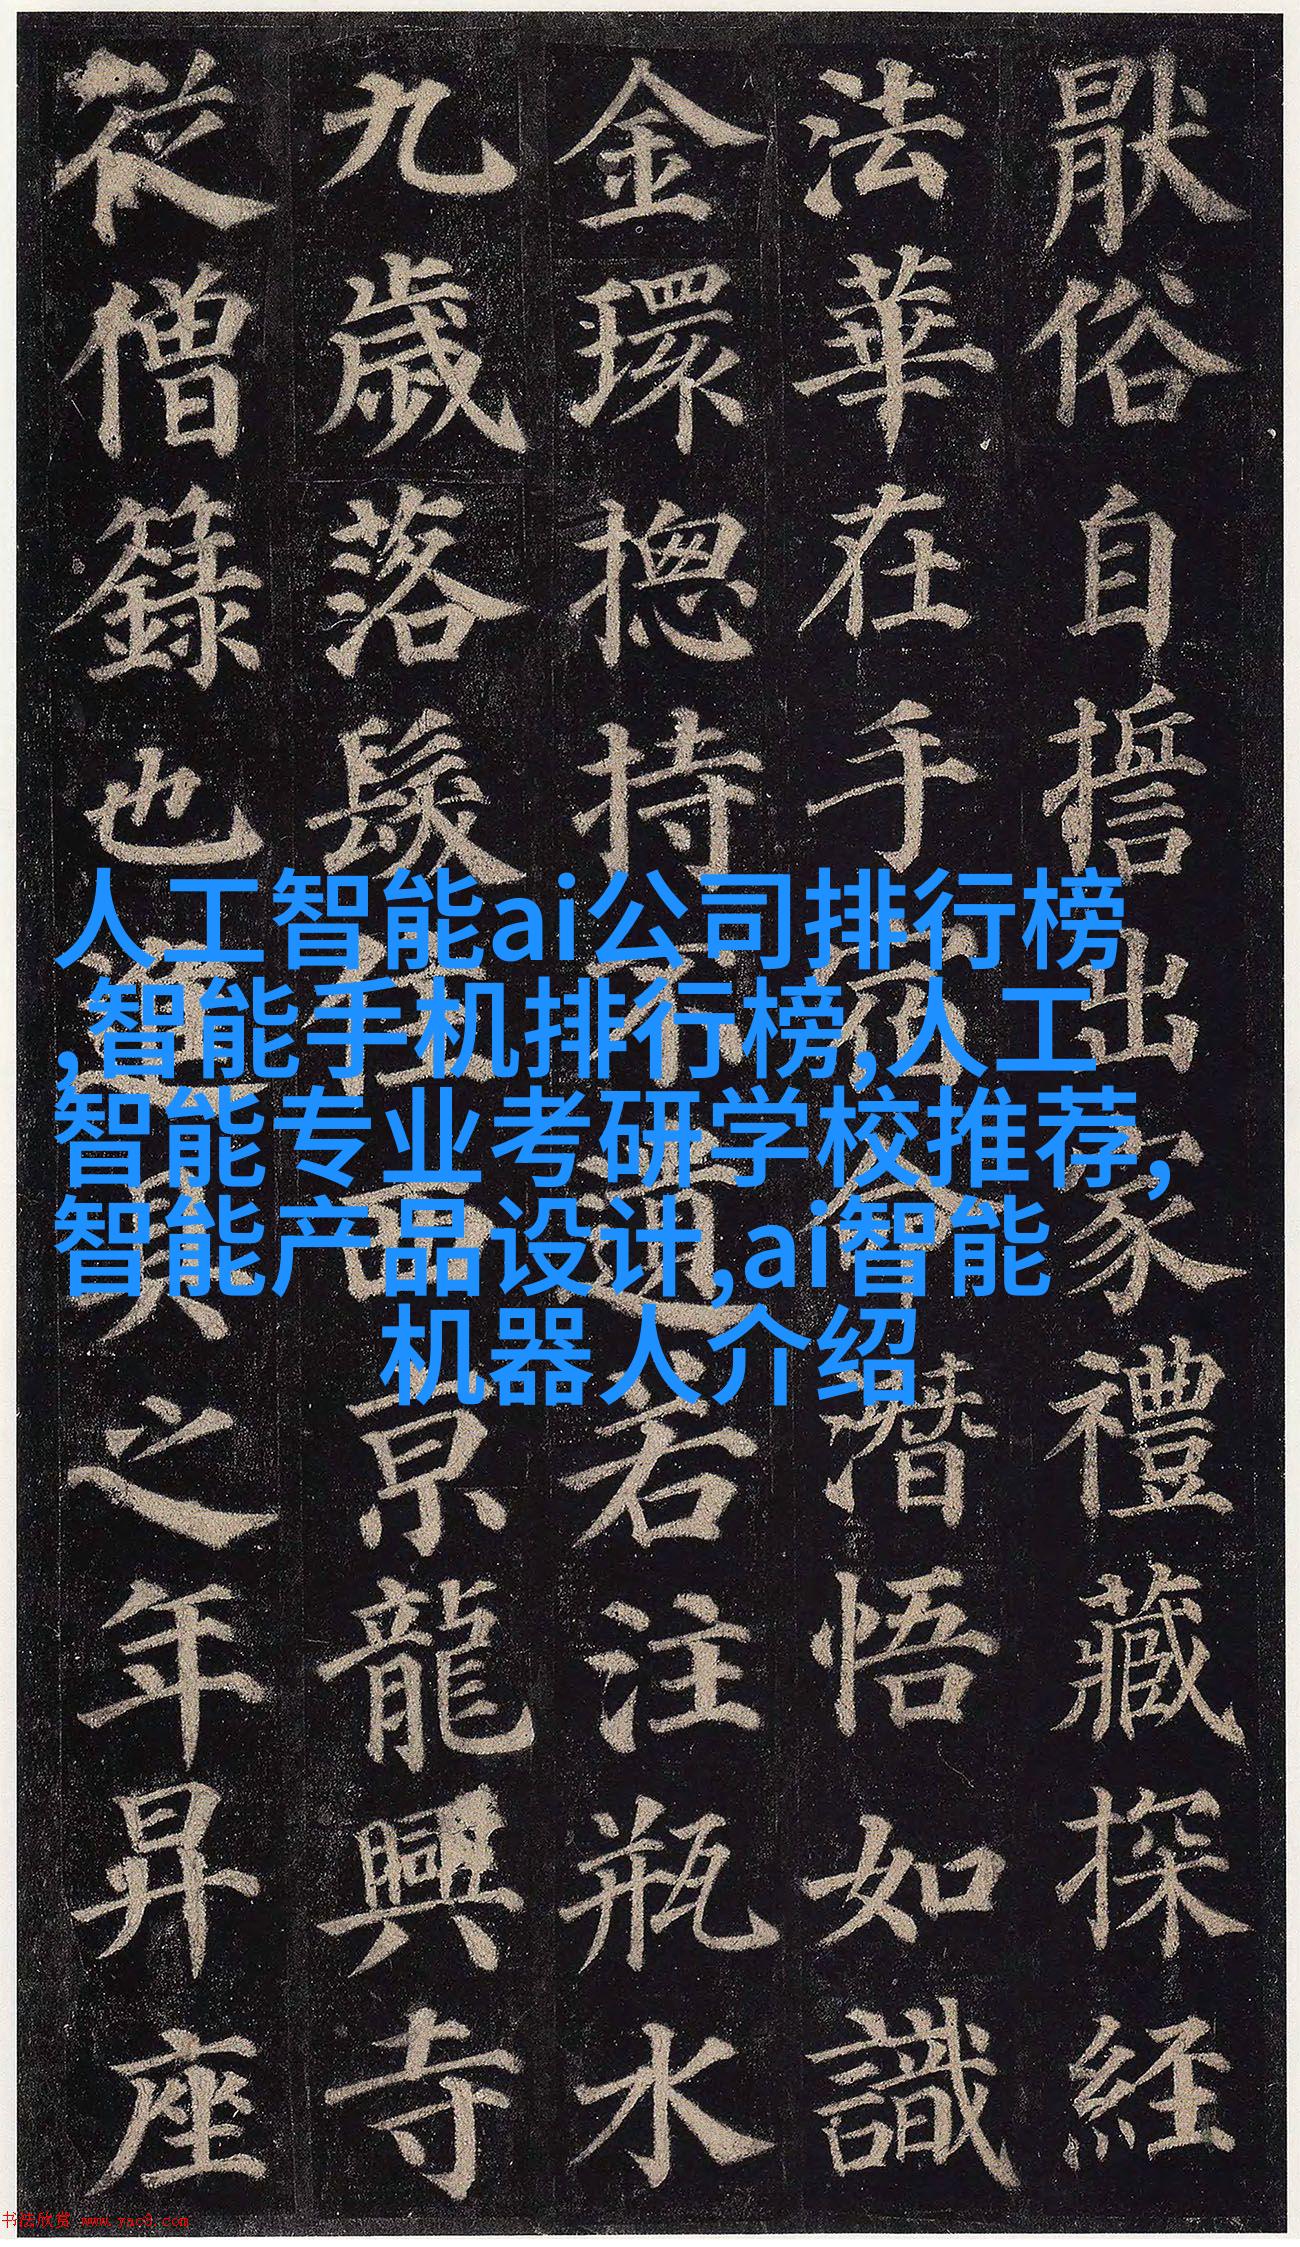 猒俗自誓出家禮藏探經
法華在手宿命潛悟如識
金環揔持不遺若注瓶水
九歲落髮住西京龍興寺
從僧籙也進具之年昇座
人工智能ai公司排行榜
,智能手机排行榜,人工
智能专业考研学校推荐,
智能产品设计,ai智能
机器人介绍
书法欣赏 www.yac8.com